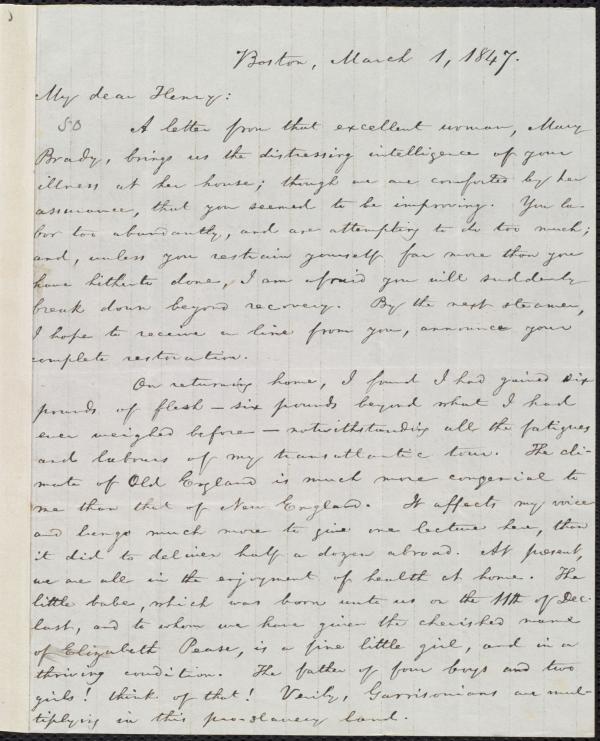 Boston, March 1, 1847.
My dear Henry:
SO A letter from that excellent woman, Mary
Brady, brings us the distressing intelligence of your
illness at her house; though we are comforted by her
assurance, that you seemed to be improving. You la-
bor too abundantly, and are attempting to do too much;
and, unless you restrain yourself far more than you
have hitherto done, I am afraid you will suddenly
break down beyond recovery. By the next steamer,
I hope to receive a line from you, announce your
complete restoration.
On returning home, I found I had gained six
pounds of flesh — six pounds beyond what I had
ever weighed before — notwithstanding all the fatigues
and labours of my transatlantic tour. The cli-
mate of Old England is much more congenial to
me than that of New England. It affects my voice
and lungs much more to give one lecture here, than
it did to deliver half a dozen abroad. At present,
we are all in the enjoyment of health at home. The
little babe, which was born unto us on the 11th of Dec.
last, and to whom we have given the cherished name
of Elizabeth Pease, is a fine little girl, and in a
thriving condition. The father of four boys and two
girls! think of that! Verily, Garrisonians are mul-
tiplying in this pro-slavery land.